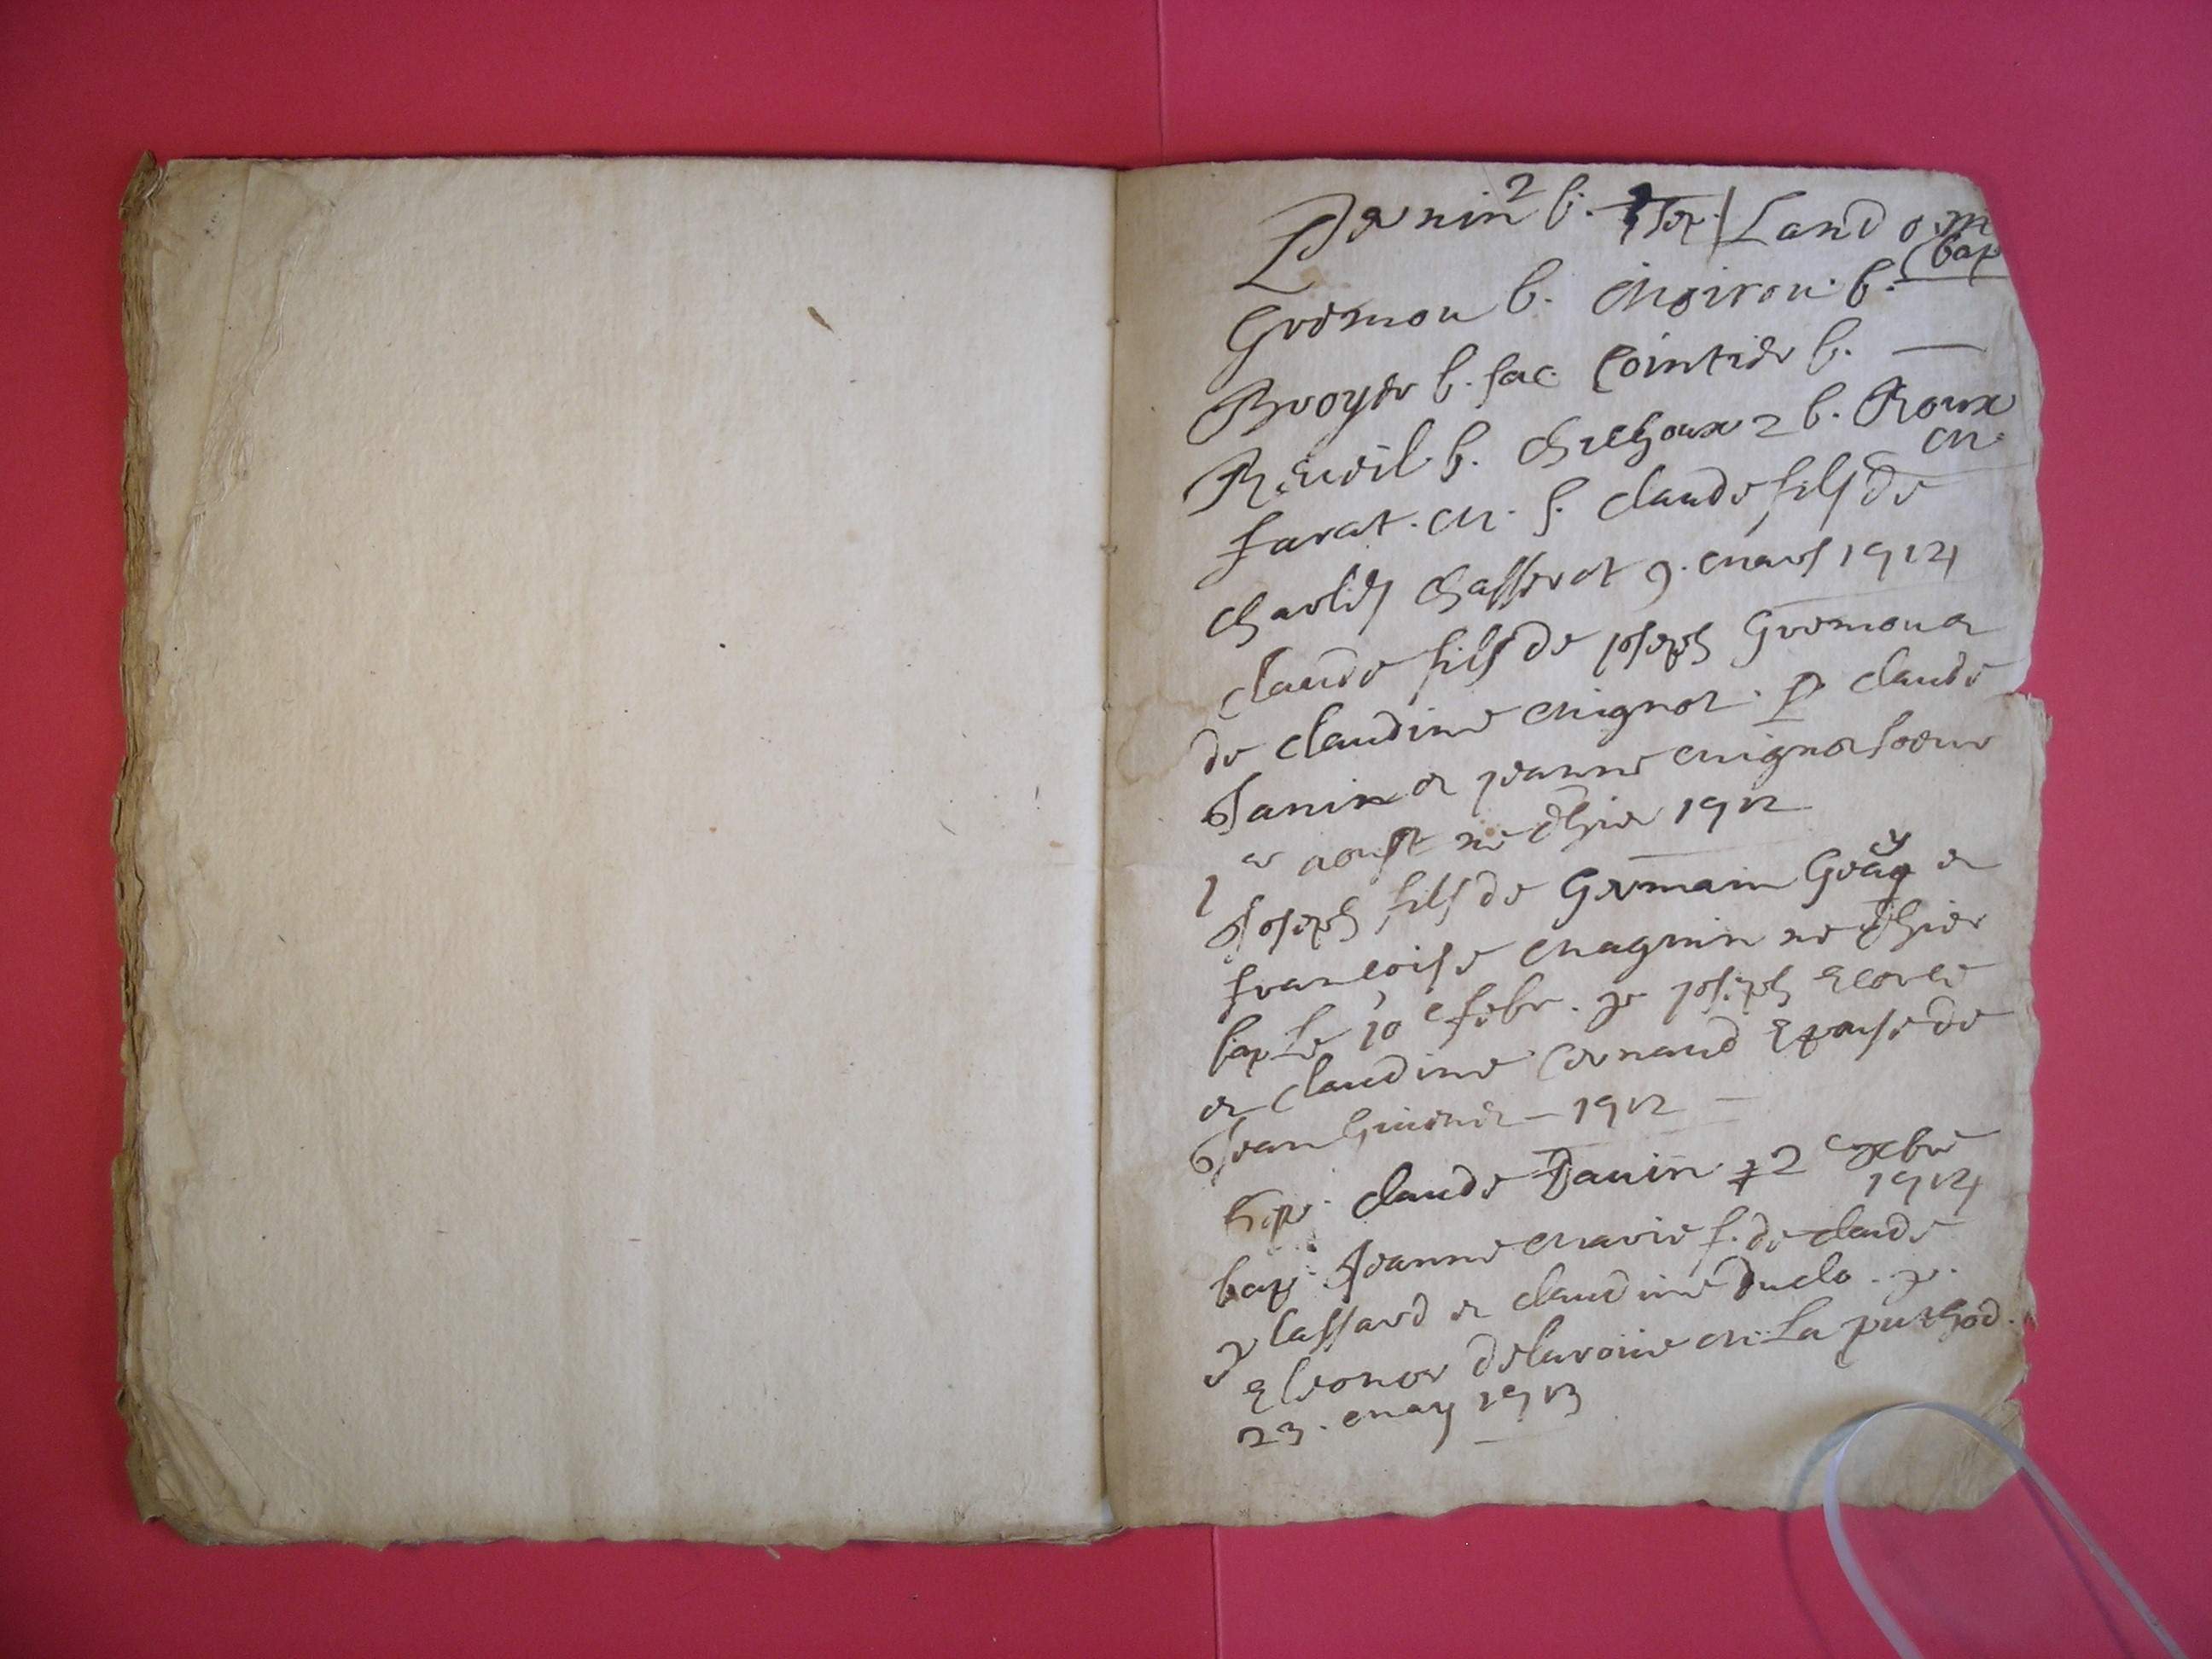 Janin 2 b. Lando m
bap
Gremon b. Moiron b.
Broyer b. sac. Cointier b. —
Reveil b. Chichoux 2 b. Roux
M.
farat. M. S. Claude fils de
Charles Chasserot 9. Mars 1714
Claude fils de joseph Gremon et
de Claudine Mignot. P. Claude
Janin et jeanne Mignot soeur
1er aoust ne d'hier 1712
Joseph fils de Germain Geay et
francoise Magnin ne d'hier
bap le 10e febr. p joseph
et Claudine Cornaud Epouse de
Jean — 1712 —
Claude Janin 2 xbre
1714
bap. Jeanne Marie f. de Claude
plassard et Claudine Duclo. p.
Eleonor delaroüe M. La puthod.
23. May 1713